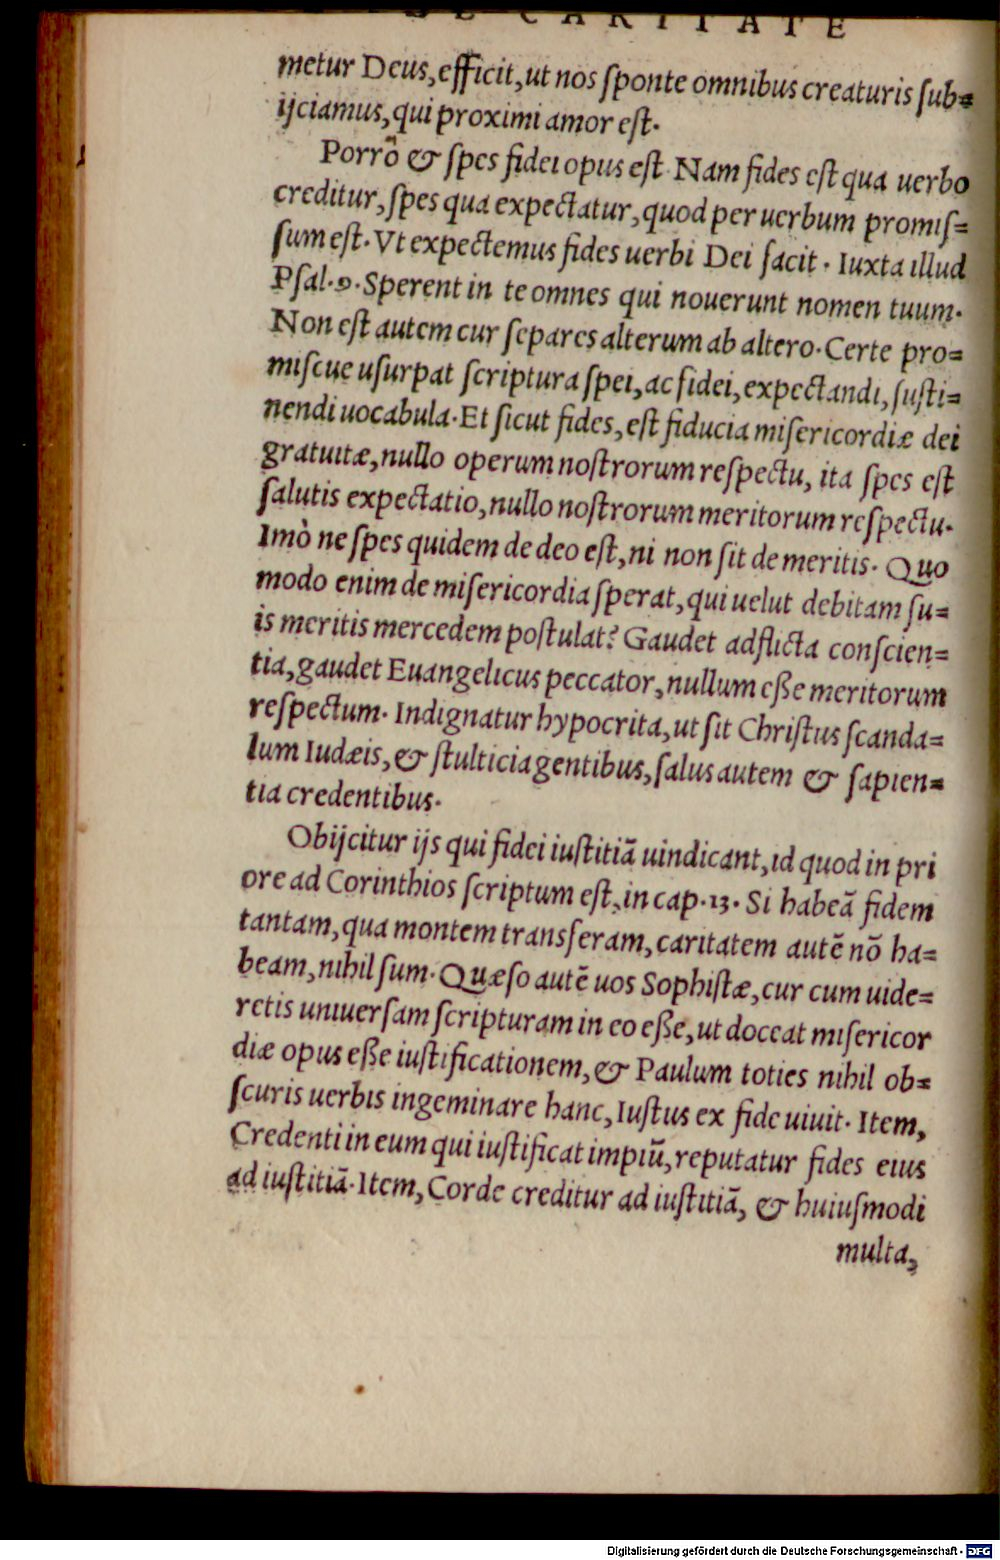 DE CARITATE
metur Deus, efficit, ut nos ſponte omnibus creaturis ſub=
ijciamus, qui proximi amor eſt.
Porrô & ſpes fidei opus eſt. Nam fides eſt qua uerbo
creditur, ſpes qua expectatur, quod per uerbum promiſ=
ſum eſt. Vt expectemus fides uerbi Dei facit. Iuxta illud
Pſal. 9. Sperent in te omnes qui nouerunt nomen tuum.
Non eſt autem cur ſepares alterum ab altero. Certe pro=
miſcue uſurpat ſcriptura ſpei, ac fidei, expectandi, ſuſti=
nendi uocabula. Et ſicut fides, eſt fiducia miſericordiæ dei
gratuitæ, nullo operum noſtrorum reſpectu, ita ſpes eſt
ſalutis expectatio, nullo noſtrorum meritorum reſpectu.
Imò ne ſpes quidem de deo eſt, ni non ſit de meritis. Quo
modo enim de miſericordia ſperat, qui uelut debitam ſu=
is meritis mercedem poſtulat? Gaudet adflicta conſcien=
tia, gaudet Euangelicus peccator, nullum eſſe meritorum
reſpectum. Indignatur hypocrita, ut ſit Chriſtus ſcanda=
lum Iudæis, & ſtulticia gentibus, ſalus autem & ſapien=
tia credentibus.
Obijcitur ijs qui fidei iuſtitiã uindicant, id quod in pri
ore ad Corinthios ſcriptum eſt, in cap. 13. Si habeã fidem
tantam, qua montem transferam, caritatem autẽ nõ ha=
beam, nihil ſum. Quæſo autẽ uos Sophiſtæ, cur cum uide=
retis uniuerſam ſcripturam in eo eſſe, ut doceat miſericor
diæ opus eſſe iuſtificationem, & Paulum toties nihil ob=
ſcuris uerbis ingeminare hanc, Iuſtus ex fide uiuit. Item,
Credenti in eum qui iuſtificat impiũ, reputatur fides eius
ad iuſtitiã. Item, Corde creditur ad iuſtitiã, & huiuſmodi
multa,
Digitalisierung gefördert durch die Deutsche Forschungsgemeinschaft - DFG